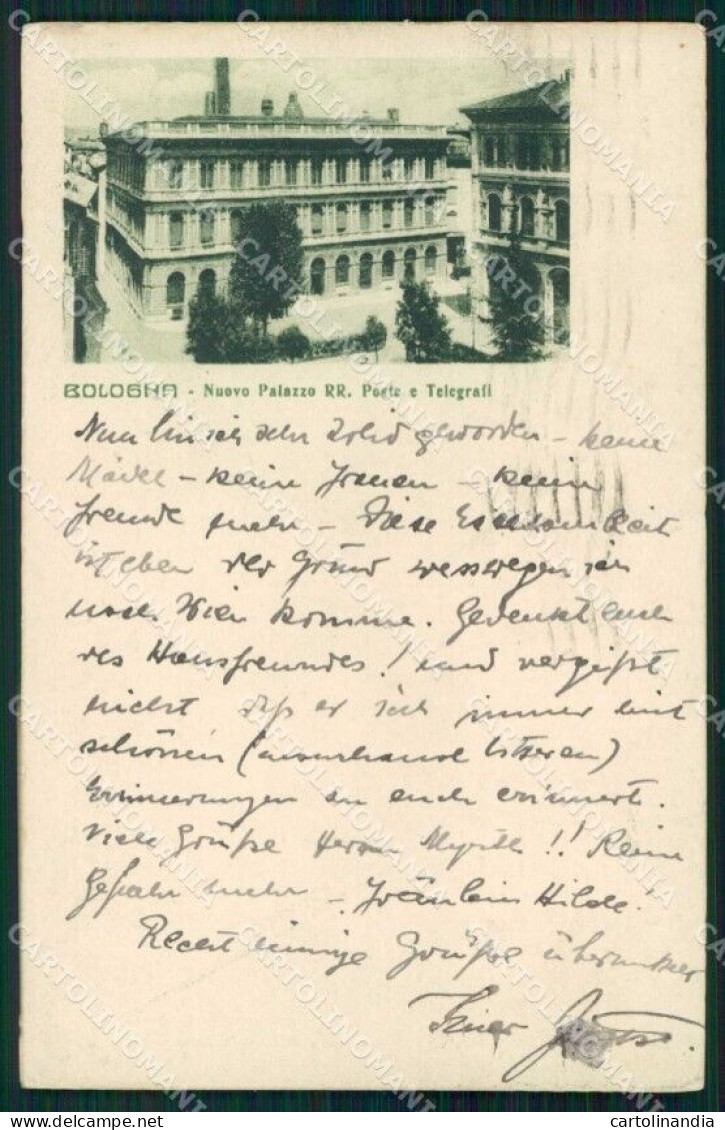 BOLOGNA - Nuovo Palazzo RR. Poste e Telegrafi
Nun bin ich sehr solid geworden - keine
Mädel - keine Frauen - keine
Freunde mehr - Diese Einsamkeit
ist eben der Grund wesswegen ich
nach Wien komme. Gedenkt euch
des Hausfreundes! und vergißt
nicht daß er sich immer mit
schönen (
Erinnerungen an euch erinnert.
Viele Grüße Herrn !! Keine
Gefahr mehr - Fräulein Hilde!
Recht innige Grüße
Euer
cartolinandia